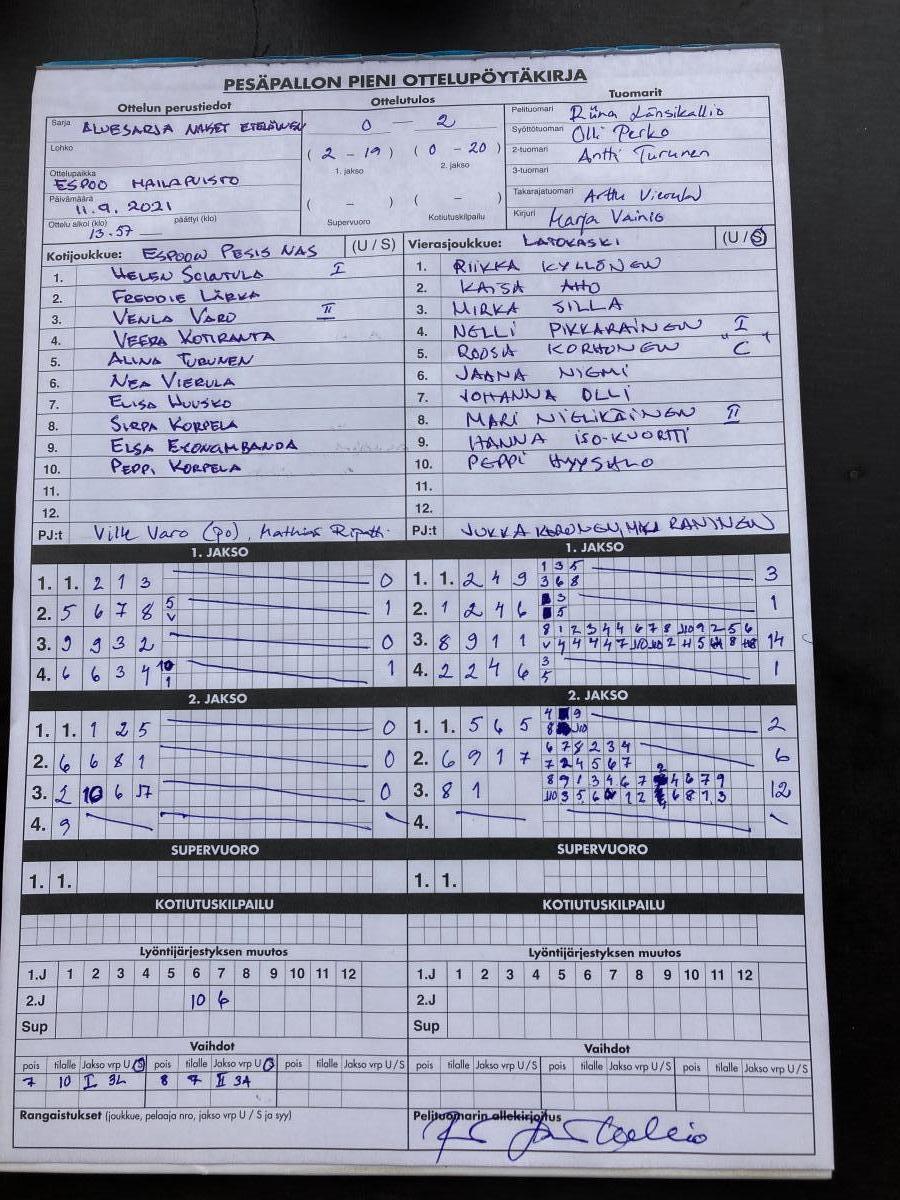 PESÄPALLON PIENI OTTELUPÖYTÄKIRJA
Ottelun perustiedot
Ottelutulos
Tuomarit
Sarja ALUESARJA NAISET ETELÄINEN
Lohko
Ottelupaikka
ESPOO MAILAPUISTO
Päivämäärä
11.9. 2021
Ottelu alkoi (klo) päättyi (klo)
13.57
0 — 2
( 2 - 19 ) ( 0 - 20 )
1. jakso 2. jakso
( - ) ( - )
Supervuoro Kotiutuskilpailu
Pelituomari Riina Länsikallio
Syöttötuomari Olli Perko
2-tuomari Antti Turunen
3-tuomari
Takarajatuomari Arttu Vierula
Kirjuri Marja Vainio
Kotijoukkue: ESPOON PESIS NAS (U / S)
1. HELEN I
2. FREDDIE LÄRKA
3. VENLA VARO II
4. VEERA KOTIRANTA
5. ALINA TURUNEN
6. NEA VIERULA
7. ELISA HUUSKO
8. SIRPA KORPELA
9. ELSA
10. PEPPI KORPELA
11.
12.
PJ:t Ville Varo (po), Mathias
Vierasjoukkue: LATOKASKI (U / S)
1. RIIKKA KYLLÖNEN
2. KAISA AHO
3. MIRKA SILLA
4. NELLI PIKKARAINEN I
5. ROOSA KORHONEN "C"
6. JAANA NIEMI
7. JOHANNA OLLI
8. MARI II
9. HANNA ISO-KUORTTI
10. PEPPI HYYSALO
11.
12.
PJ:t JUKKA RANINEN
1. JAKSO
1. 1. 2 1 3 0
2. 5 6 7 8 5 1
V
3. 9 9 3 2 0
4. 6 6 3 4 10 1
1
1. JAKSO
1. 1. 2 4 9 1 3 5 3
3 6 8
2. 1 2 4 6 3 1
5
3. 8 9 1 1 14
4. 2 2 4 6 3 1
5
2. JAKSO
1. 1. 1 2 5 0
2. 6 6 8 1 0
3. 2 10 6 0
4. 9
2. JAKSO
1. 1. 5 6 5 4 9 2
2. 6 9 1 7 6 7 8 2 3 4 6
7 2 4 5 6 7
3. 8 1 12
4.
SUPERVUORO
1. 1.
SUPERVUORO
1. 1.
KOTIUTUSKILPAILU
KOTIUTUSKILPAILU
Lyöntijärjestyksen muutos
1.J 1 2 3 4 5 6 7 8 9 10 11 12
2.J 10 6
Sup
Lyöntijärjestyksen muutos
1.J 1 2 3 4 5 6 7 8 9 10 11 12
2.J
Sup
Vaihdot
pois tilalle Jakso vrp U/S pois tilalle Jakso vrp U/S pois tilalle Jakso vrp U/S
7 10 I 3L 8 7 II 3A
Vaihdot
pois tilalle Jakso vrp U/S pois tilalle Jakso vrp U/S pois tilalle Jakso vrp U/S
Rangaistukset (joukkue, pelaaja nro, jakso vrp U / S ja syy)
Pelituomarin allekirjoitus